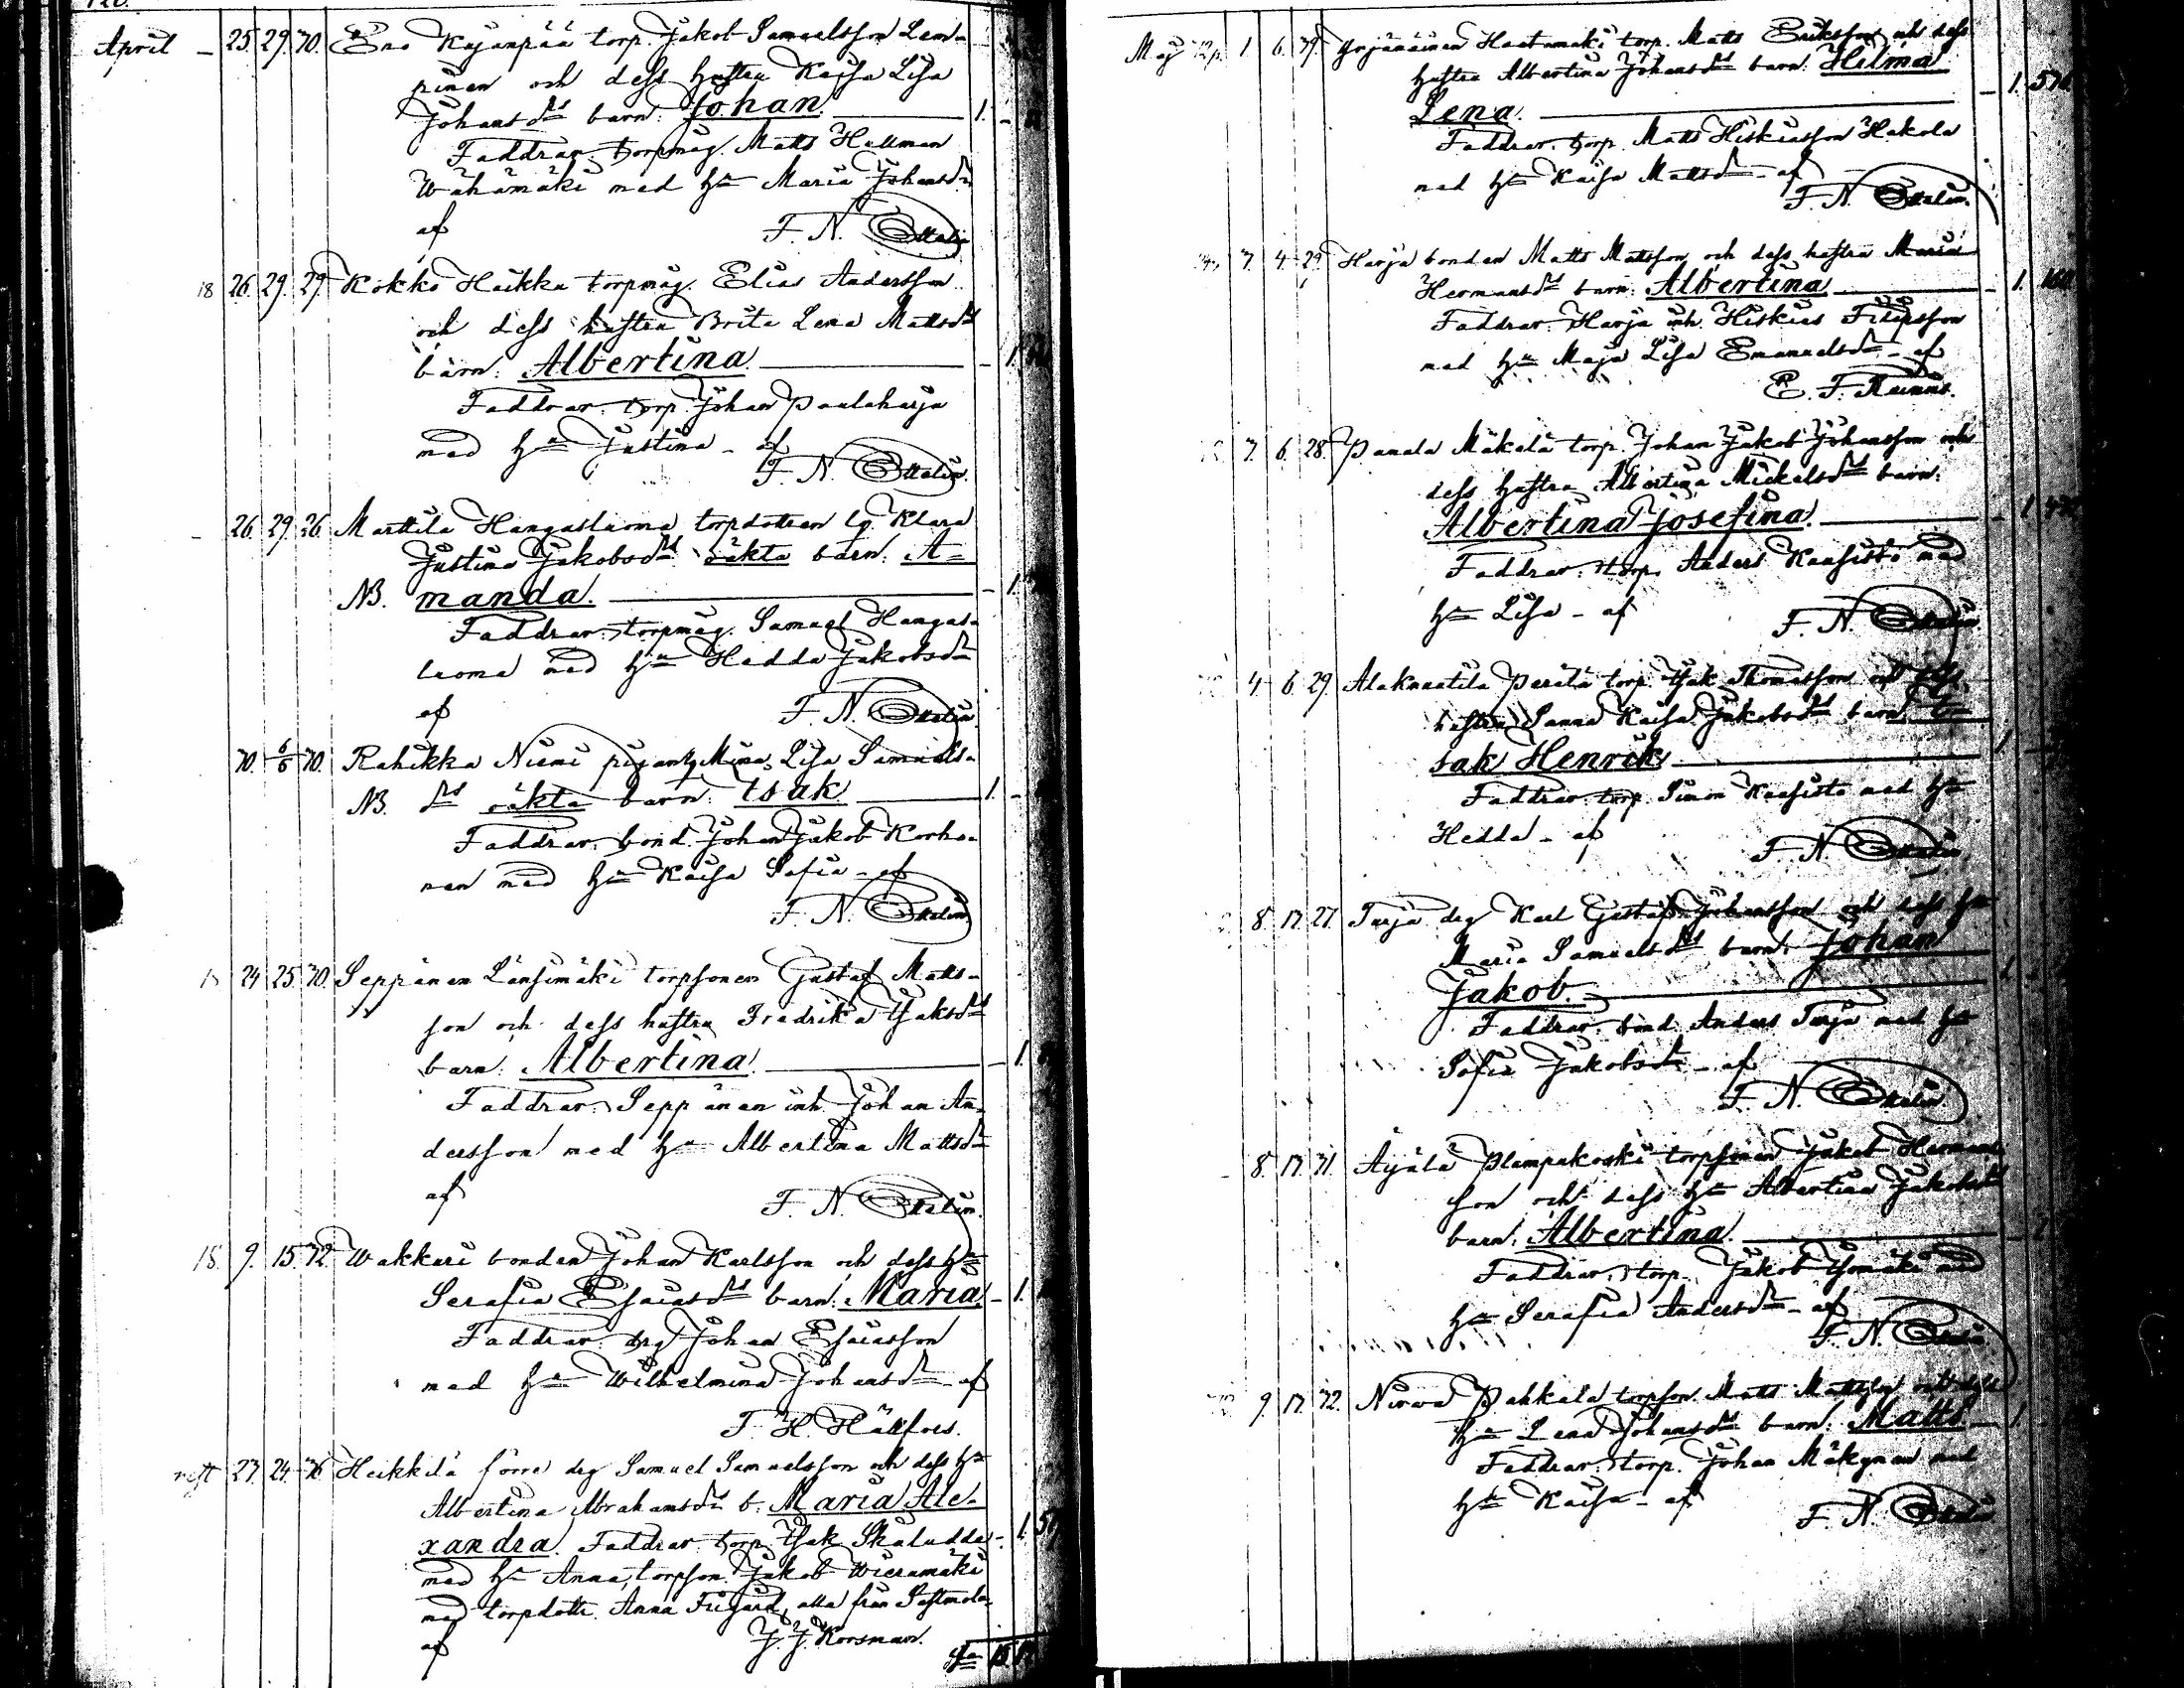 April - 25. 29. 30. Eno Kajanpää torp. Jakob Samuelsson Lem-
pinen och dess hustru Kajsa Lisa
Johansdr barn: Johan. 1. -
Faddrar: torpmåg. Matts Hallman
Wähämäki med hu Maria Johansdr
af F. N. Stalin.
18 26. 29. 29. Kokko Heikka torpmåg. Elias Andersson
och dess hustru Brita Lena Mattsdr
barn: Albertina. - 1.
Faddrar: torp. Johan Paulaharju
med hu Justina - af
F. N. Stalin.
- 26. 29. 26. Marttila Hangasluoma torpdottren lg. Klara
Justina Jakobsdr oäkta barn: A-
NB. manda. - 1.
Faddrar: torpmåg. Samuel Hangas-
luoma med hu Hedda Jakobsdr
af F. N. Stalin
30. 30. Rahikka Niemi pigan Mina Lisa Samuels-
NB. dr oäkta barn: Isak 1. -
Faddrar: bond. Johan Jakob Korho-
nen med hu Kaisa Sofia - af
F. N. Stalin
24 25. 30. Seppänen Länsimäki torpsonen Gustaf Matts-
son och dess hustru Fredrika Isaksdr
barn: Albertina. - 1.
Faddrar: Seppänen inh. Johan An-
dersson med hu Albertina Mattsdr
af F. N. Stalin.
18. 9. 15. 32. Wakkuri bonden Johan Karlsson och dess hu
Serafia Esaiasdr barn: Maria - 1.
Faddrar: drg Johan Esaiasson
med hu Wilhelmina Johansdr af
F. H. Hällfors.
27. 24. Heikkilä förre drg Samuel Samuelsson och dess hu
Albertina Abrahamsdr b. Maria Ale-
xandra. Faddrar: torp. Isak Skaludda - 1.
med hu Anna, torpson. Jakob Wieramäki
med torpdottr. Anna Frigård, alla från Sastmola
af J. J. Korsman.
Maj 1. 6. 39. Yrjänäinen Haatumäki torp. Matts Eriksson och dess
hustru Albertina Johansdr barn: Hilma
Lena. - 1.
Faddrar: torp. Matts Hiskiasson Hakola
med hu Kaisa Mattsdr - af
F. N. Stalin.
7. 4. 29. Harju bonden Matts Mattsson och dess hustru Maria
Hermansdr barn: Albertina - 1.
Faddrar: Harju inh. Hiskias Filipsson
med hu Maja Lisa Emanuelsdr - af
E. F. Rainus.
7. 6. 28. Panula Mäkelä torp. Johan Jakob Johansson och
dess hustru Albertina Mickelsdr barn:
Albertina Josefina. - 1
Faddrar: torp. Anders Kaasisto med
hu Lisa - af F. N. Stalin.
4. 6. 29. Alaknuutila Perälä torp. Isak Thomasson och dess
hustru Sanna Kaisa Jakobsdr barn: I-
sak Henrik 1
Faddrar: torp. Simon Kaasisto med hu
Hedda - af F. N. Stalin.
8. 17. 27. Turja drg Karl Gustaf Johansson och dess hu
Maria Samuelsdr barn: Johan
Jakob. 1
Faddrar: bond. Anders Turja med hu
Sofia Jakobsdr - af
F. N. Stalin
- 8. 17. 31. Äijälä Plampakoski torpsonen Jakob Hermans-
son och dess hu Albertina Jakobsdr
barn: Albertina. - 1
Faddrar: torp. Jakob Isomäki med
hu Serafia Andersdr - af
F. N. Stalin
9. 17. 32. Nirva Pahkala torpson. Matts Mattsson och dess
hu Lena Johansdr barn: Matts - 1.
Faddrar: torp. Johan Mäkynen med
hu Kaisa - af F. N. Stalin